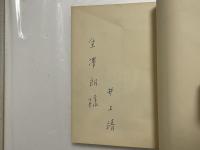 宮澤朗様
井上靖